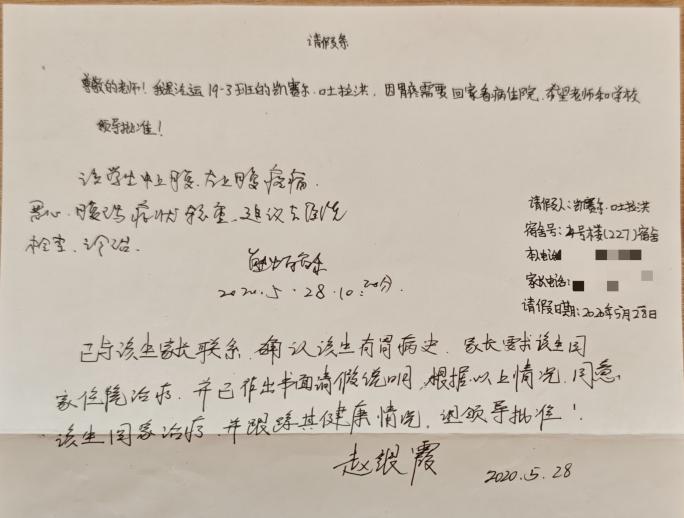 请假条
尊敬的老师！我是法运19-3班的凯赛尔·吐拉洪，因胃疼需要回家看病住院，希望老师和学校
领导批准！
该学生中上腹、左上腹疼痛，
恶心、腹泻症状较重，建议去医院
检查、诊治。
2020.5.28.10:20分.
请假人:凯赛尔·吐拉洪
宿舍号:号楼(227)宿舍
本人电话
家长电话:
请假日期:2020年5月28日
已与该生家长联系，确认该生有胃病史，家长要求该生回
家住院治疗，并已作出书面请假说明，根据以上情况，同意
该生回家治疗，并跟踪其健康情况，望领导批准！
赵银霞 2020.5.28